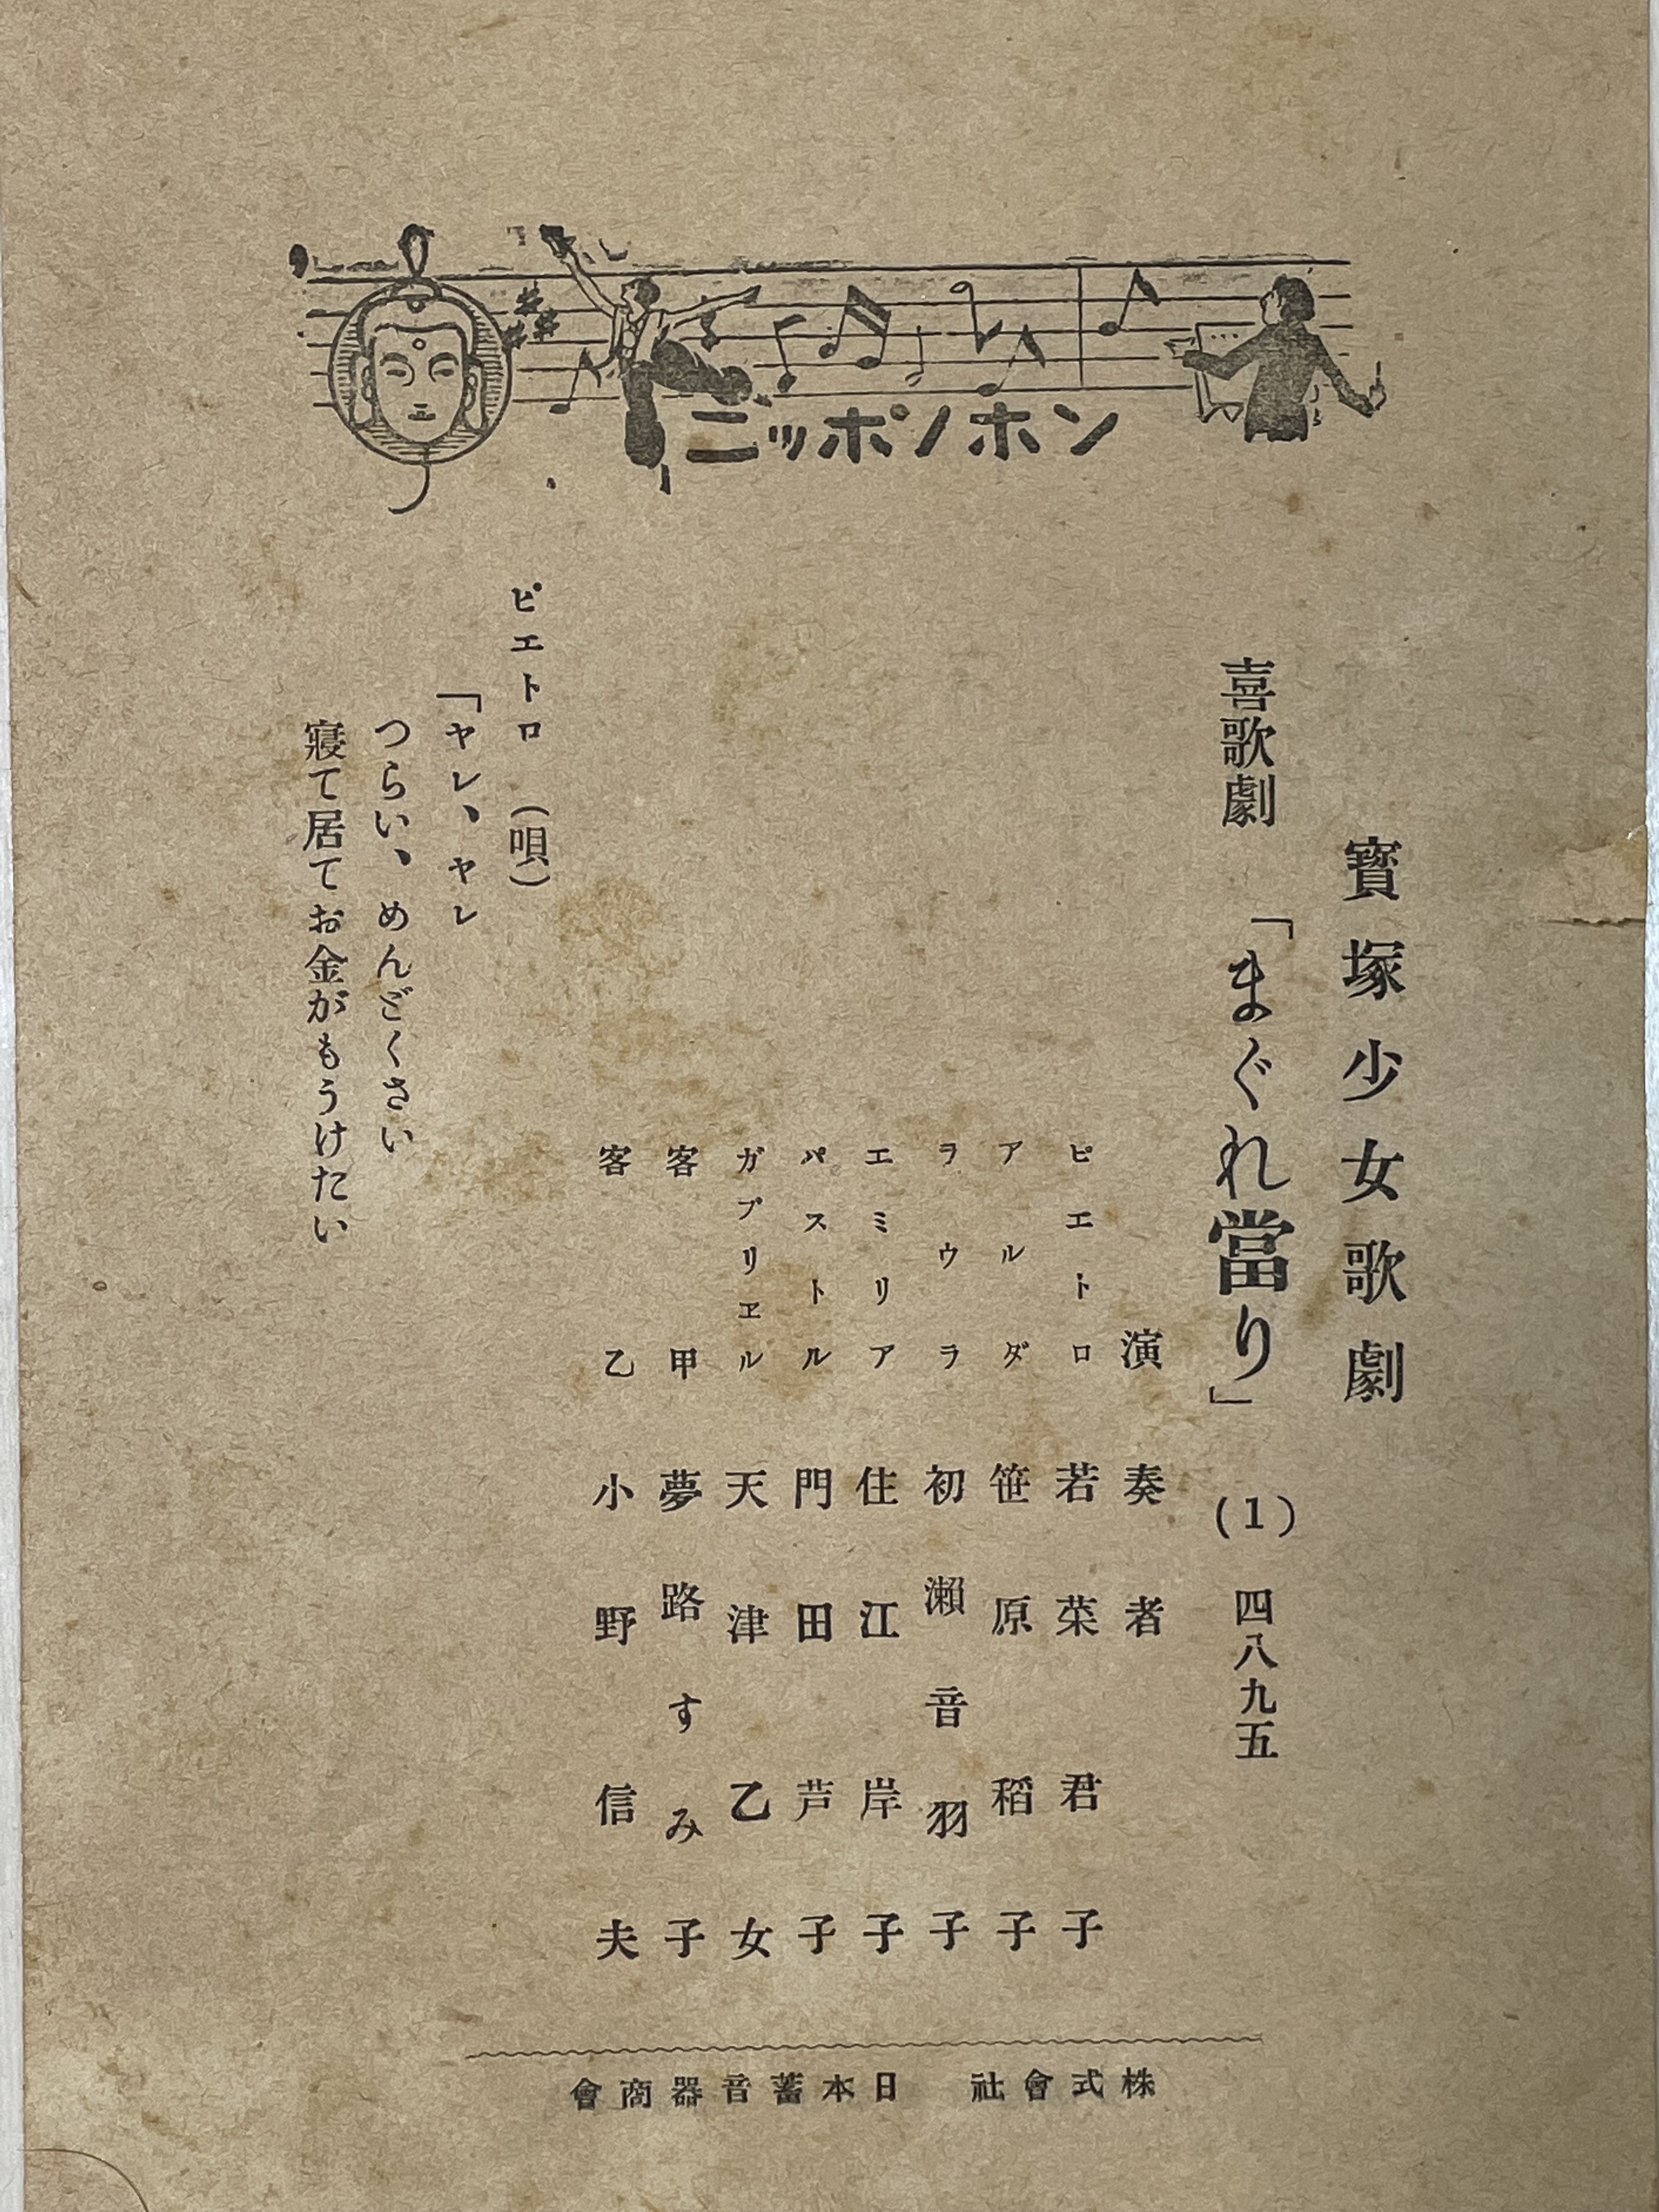 ニッポノホン
寳塚少女歌劇
喜歌劇 「まぐれ當り」 (1) 四八九五
演奏者
ピエトロ 若菜君子
アルダ 笹原稲子
ラウラ 初瀬音羽子
エミリア 住江岸子
パストル 門田芦子
ガブリヱル 天津乙女
客甲 夢路すみ子
客乙 小野信夫
ピエトロ (唄)
「ヤレ、ヤレ
つらい、めんどくさい
寢て居てお金がもうけたい
株式會社 日本蓄音器商會